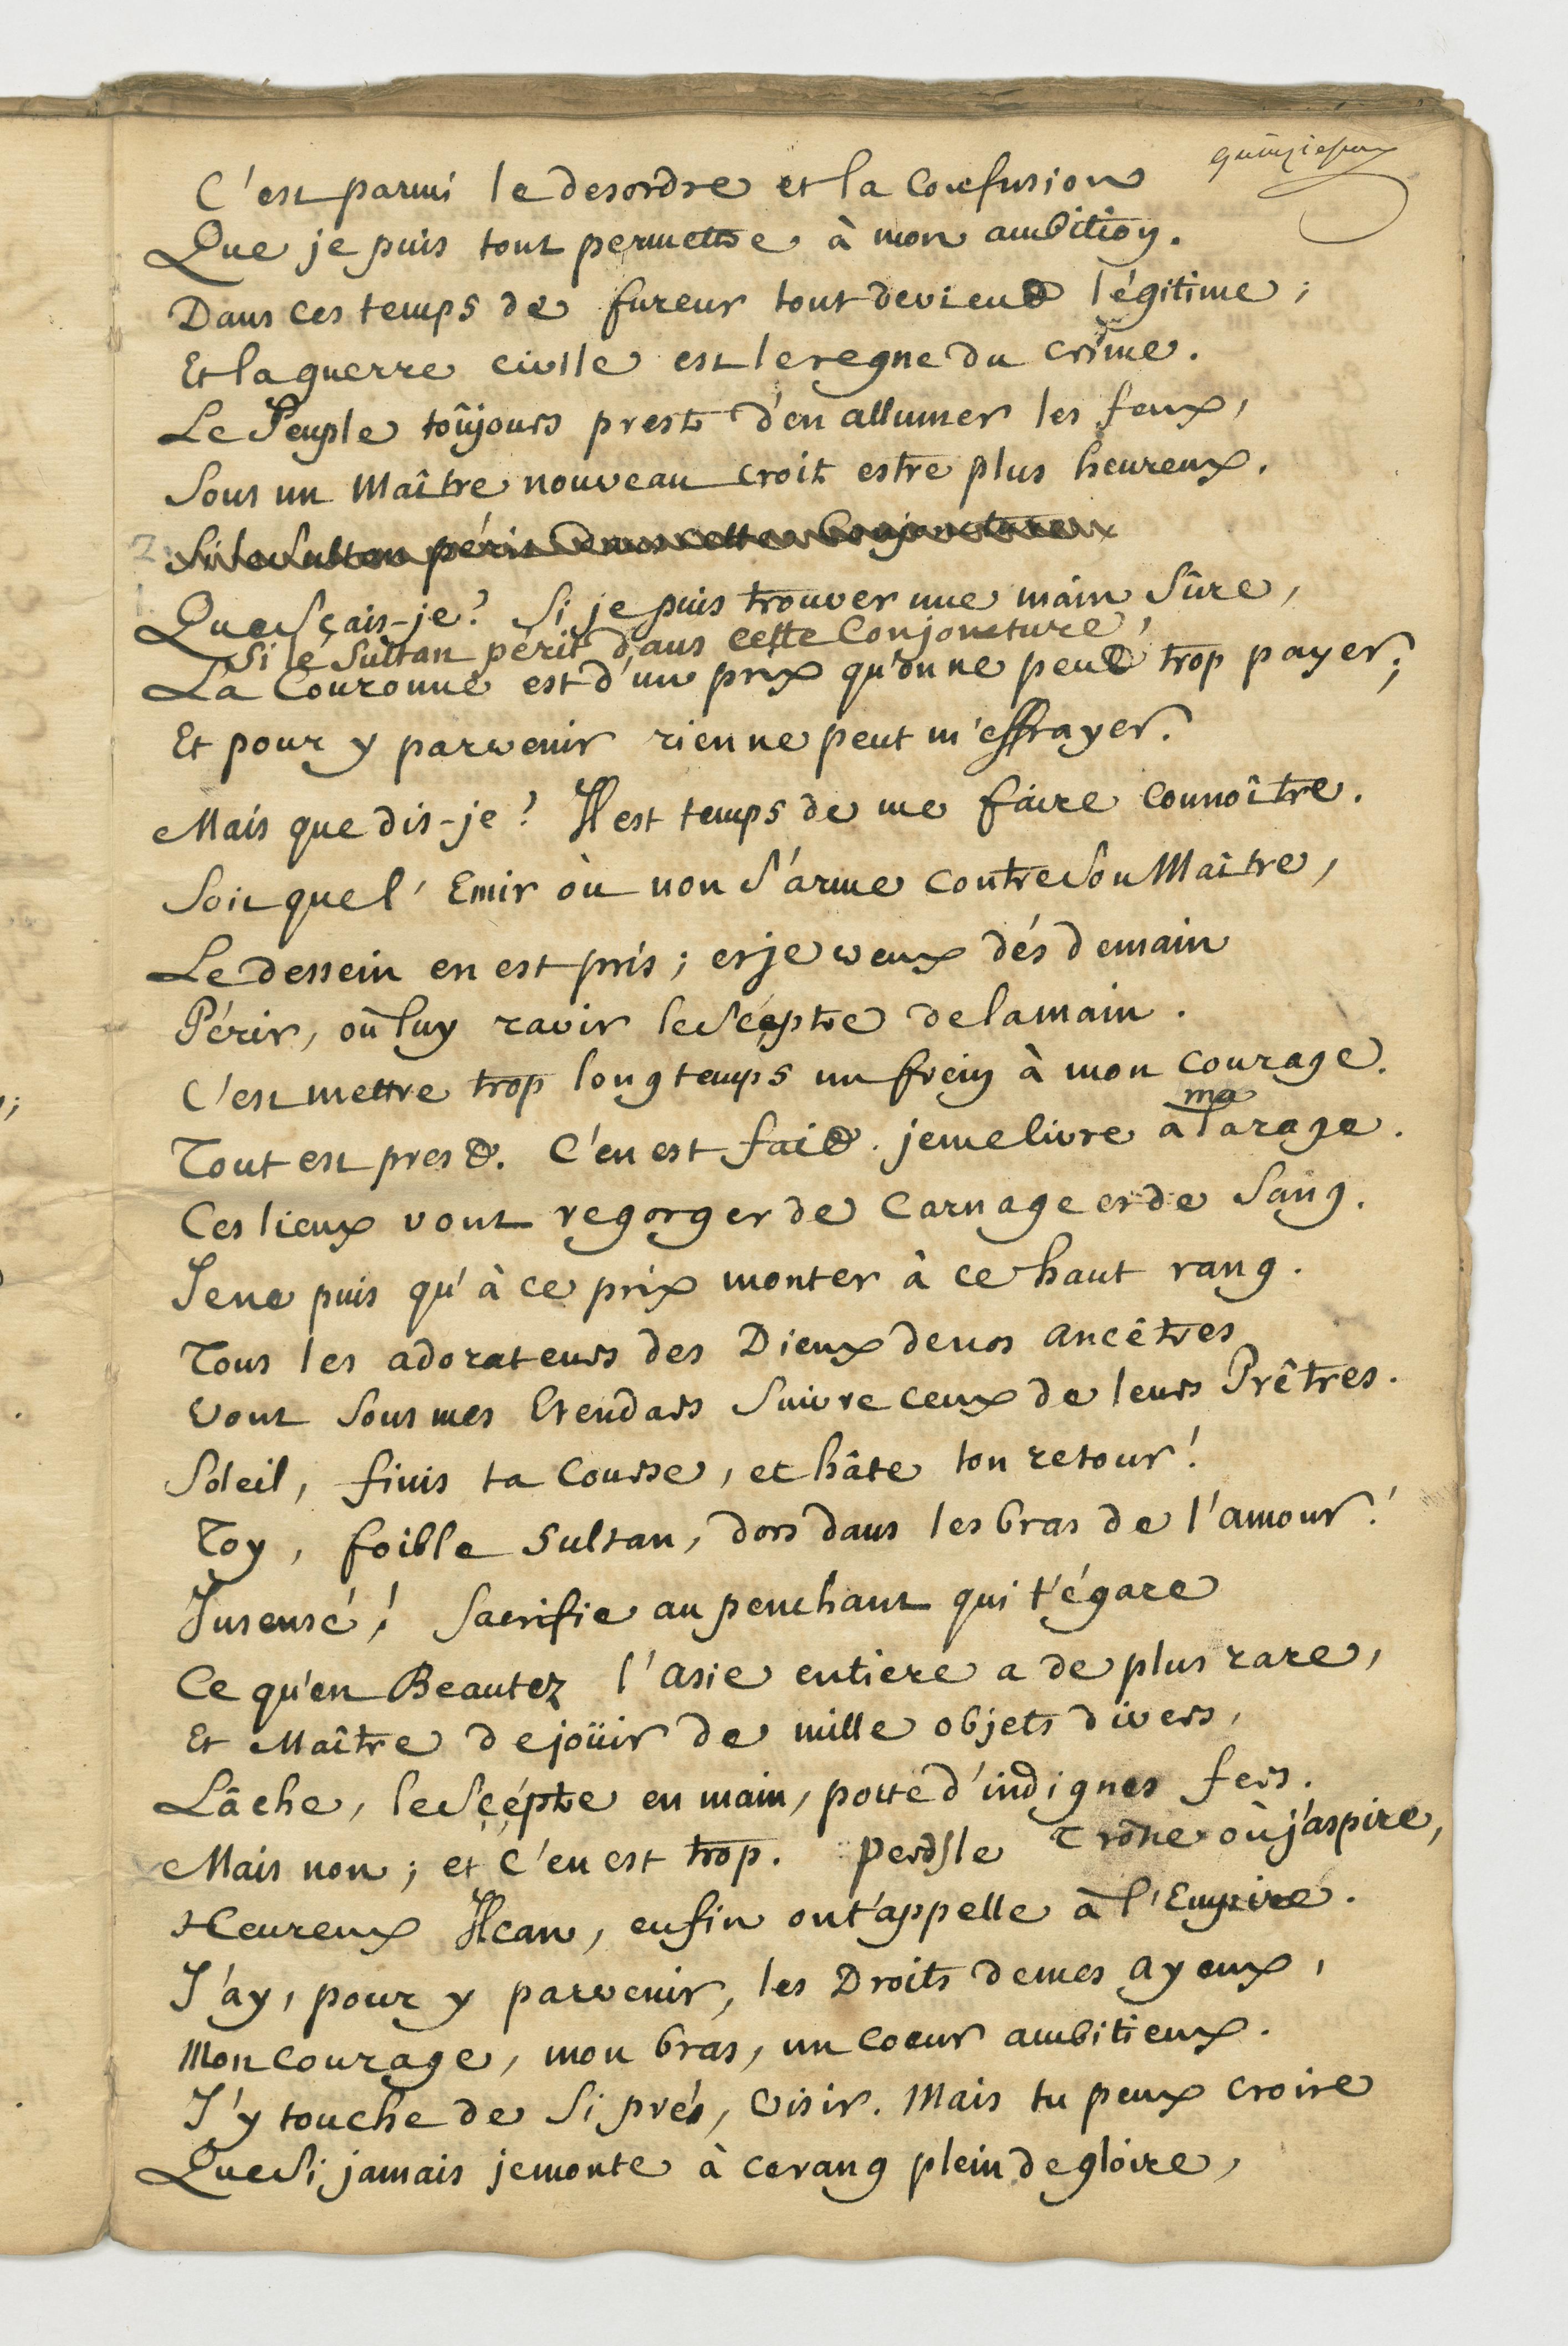 quinziesme
C'est parmi le desordre et la Confusion
Que je puis tout permettre à mon ambition.
Dans ces temps de fureur tout devient légitime ;
Et la guerre civile est le regne du crime.
Le Peuple toûjours prest d'en allumer les feux,
Sous un Maître nouveau croit estre plus heureux.
2 Si le Sultan périt dans cette Conjoncture
1. Que sçais-je ? Si je puis trouver une main sûre,
Si le Sultan périt dans cette Conjoncture,
La Couronne est d'un prix qu'on ne peut trop payer ;
Et pour y parvenir rien ne peut m'effrayer.
Mais que dis-je ? Il est temps de me faire connoître.
Soit que l'Emir où non s'arme contre son Maître,
Le dessein en est pris ; et je veux dés demain
Périr, où luy ravir le Scéptre de la main.
C'est mettre trop longtemps un frein à mon courage.
Tout est prest. C'en est fait. je me livre à la rage.
ma
Ces lieux vont regorger de Carnage et de Sang.
Je ne puis qu'à ce prix monter à ce haut rang.
Tous les adorateurs des Dieux de nos ancêtres
Vont sous mes Etendars suivre ceux de leurs Prêtres.
Soleil, finis ta Course, et hâte ton retour !
Toy, foible Sultan, dors dans les bras de l'amour !
Insensé ! Sacrifie au penchant qui t'égare
Ce qu'en Beautez l'asie entiere a de plus rare,
Et Maître de joüir de mille objets divers,
Lâche, le Scéptre en main, porte d'indignes fers.
Mais non ; et c'en est trop. Perds le Trône où j'aspire,
Heureux Ilcan, enfin on t'appelle à l'Empire.
J'ay, pour y parvenir, les Droits de mes ayeux,
Mon courage, mon bras, un coeur ambitieux.
J'y touche de si prés, Visir. Mais tu peux croire
Que si jamais je monte à ce rang plein de gloire,